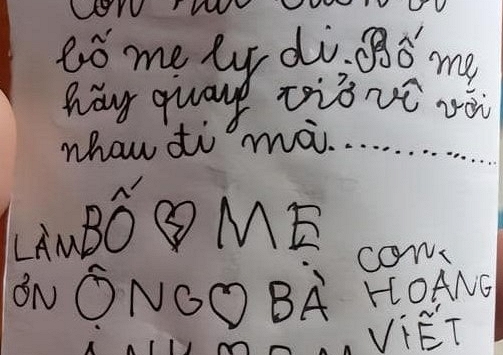 Con
bố mẹ ly dị. Bố mẹ
hãy quay trở về với
nhau đi mà..............
LÀM BỐ 💔 MẸ
ƠN ÔNG ♡ BÀ
CON
HOÀNG
VIẾT